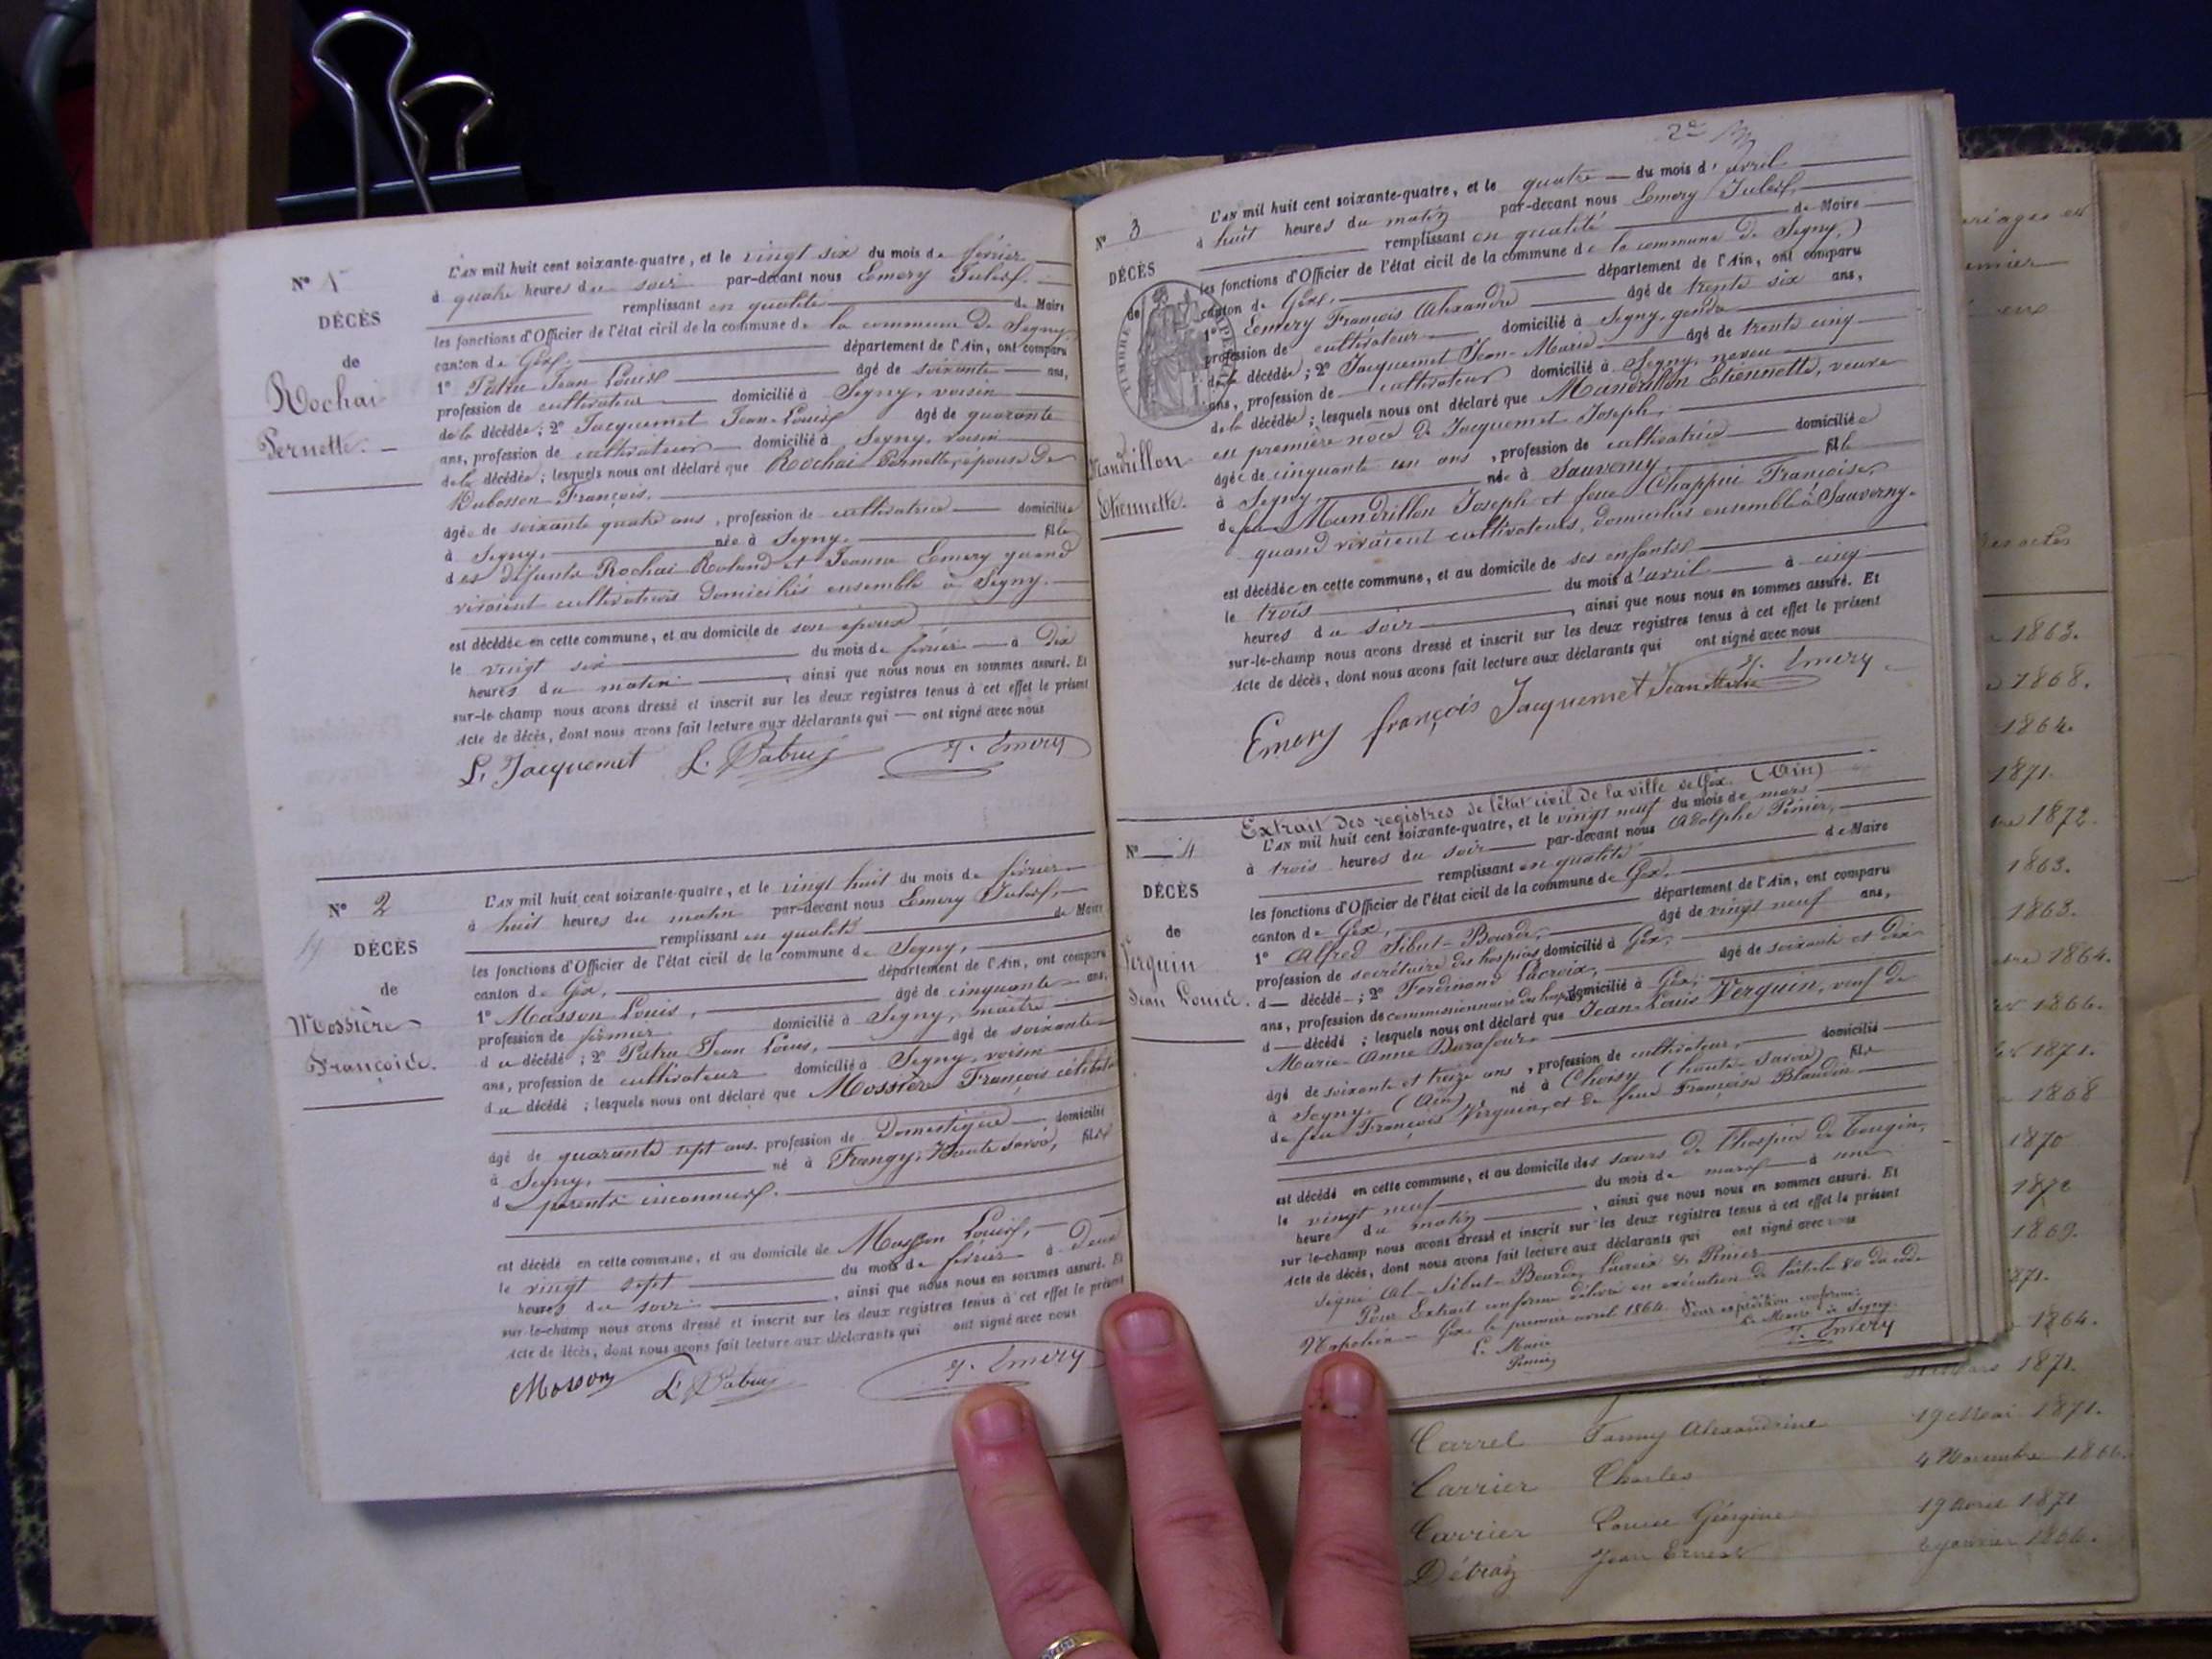 N° 1
DÉCÈS
de
Rochai
Pernette.
L'AN mil huit cent soixante-quatre, et le vingt six du mois de février
à quatre heures du soir par-devant nous Emery Jules
remplissant en qualité de Maire
les fonctions d'Officier de l'état civil de la commune de la commune de Segny
canton de Gex, département de l'Ain, ont comparu
1° Jean Louis âgé de soixante ans,
profession de cultivateur domicilié à Segny, voisin
de la décédée ; 2° Jacquemet Jean-Louis âgé de quarante
ans, profession de cultivateur domicilié à Segny, voisin
de la décédée ; lesquels nous ont déclaré que Rochai Pernette, épouse de
Dubosson François,
âgée de soixante quatre ans, profession de cultivatrice domiciliée
à Segny, née à Segny, fille
des défunts Rochai Roland et Jeanne Emery quand
vivaient cultivateurs domiciliés ensemble à Segny.
est décédée en cette commune, et au domicile de son époux
le vingt six du mois de février à dix
heures du matin, ainsi que nous nous en sommes assuré. Et
sur-le champ nous avons dressé et inscrit sur les deux registres tenus à cet effet le présent
Acte de décès, dont nous avons fait lecture aux déclarants qui — ont signé avec nous
L. Jacquemet J. Emery
N° 2
DÉCÈS
de
Mossière
François.
L'AN mil huit cent soixante-quatre, et le vingt huit du mois de février
à huit heures du matin par-devant nous Emery Jules,
remplissant en qualité de Maire
les fonctions d'Officier de l'état civil de la commune de Segny,
canton de Gex, département de l'Ain, ont comparu
1° Masson Louis, âgé de cinquante ans,
profession de fermier domicilié à Segny, maître
du décédé ; 2° Jean Louis, âgé de soixante
ans, profession de cultivateur domicilié à Segny, voisin
du décédé ; lesquels nous ont déclaré que Mossière François célibataire
âgé de quarante sept ans, profession de Domestique domicilié
à Segny, né à Frangy, Haute Savoie, fils
de parents inconnus.
est décédé en cette commune, et au domicile de Masson Louis,
le vingt sept du mois de février à deux
heures du soir, ainsi que nous nous en sommes assuré. Et
sur-le-champ nous avons dressé et inscrit sur les deux registres tenus à cet effet le présent
Acte de décès, dont nous avons fait lecture aux déclarants qui ont signé avec nous
Masson J. Emery
N° 3
DÉCÈS
de
TIMBRE
Mandrillon
Etiennette.
L'AN mil huit cent soixante-quatre, et le quatre du mois d'avril
à huit heures du matin par-devant nous Emery Jules,
remplissant en qualité de Maire
les fonctions d'Officier de l'état civil de la commune de la commune de Segny,
canton de Gex, département de l'Ain, ont comparu
1° Emery François Alexandre âgé de trente six ans,
profession de cultivateur domicilié à Segny, gendre
de la décédée ; 2° Jacquemet Jean-Marie âgé de trente cinq
ans, profession de cultivateur domicilié à Segny, neveu
de la décédée ; lesquels nous ont déclaré que Mandrillon Etiennette, veuve
en première noce de Jacquemet Joseph,
âgée de cinquante un ans, profession de cultivatrice domiciliée
à Segny, née à Sauverny fille
de feu Mandrillon Joseph et feue Chappui Françoise,
quand vivaient cultivateurs, domiciliés ensemble à Sauverny.
est décédée en cette commune, et au domicile de ses enfants
le trois du mois d'avril à cinq
heures du soir, ainsi que nous nous en sommes assuré. Et
sur-le-champ nous avons dressé et inscrit sur les deux registres tenus à cet effet le présent
Acte de décès, dont nous avons fait lecture aux déclarants qui ont signé avec nous
Emery françois Jacquemet Jean Marie J. Emery
Extrait des registres de l'état civil de la ville de Gex (Ain)
N° 4
DÉCÈS
de
Verguin
Jean Louis.
L'AN mil huit cent soixante-quatre, et le vingt neuf du mois de mars
à trois heures du soir par-devant nous Adolphe Pinier,
remplissant en qualité de Maire
les fonctions d'Officier de l'état civil de la commune de Gex,
canton de Gex, département de l'Ain, ont comparu
1° Alfred Sibut-Bourde, âgé de vingt neuf ans,
profession de secrétaire des hospices domicilié à Gex,
d— décédé ; 2° Ferdinand Lacroix, âgé de soixante et dix
ans, profession de commissionnaire domicilié à Gex,
d— décédé ; lesquels nous ont déclaré que Jean-Louis Verguin, veuf de
Marie-Anne Durafour
âgé de soixante et treize ans, profession de cultivateur, domicilié
à Segny, (Ain) né à Choisy (haute Savoie) fils
de feu François Verguin, et de feue Françoise Blandin
est décédé en cette commune, et au domicile des sœurs de l'hospice de Tougin,
le vingt neuf du mois de mars à une
heure du matin, ainsi que nous nous en sommes assuré. Et
sur le-champ nous avons dressé et inscrit sur les deux registres tenus à cet effet le présent
Acte de décès, dont nous avons fait lecture aux déclarants qui ont signé avec nous
Signé Al. Sibut-Bourde, Lacroix & Pinier
Pour Extrait conforme délivré en exécution de l'article 80 du code
Napoléon Gex le premier avril 1864. Pour expédition conforme:
Le Maire Le Maire de Segny
Pinier J. Emery
1863.
1868.
1864.
1871.
1872.
1863.
1863.
1864.
1866.
1871.
1868
1870
1872
1869.
1871.
1864.
Mars 1871.
Carrel Fanny Alexandrine 19 Mai 1871.
Carrier Charles 4 Novembre 1866.
Carrier Louise Géorgine 19 Avril 1871
Détraz Jean Ernest janvier 1866.